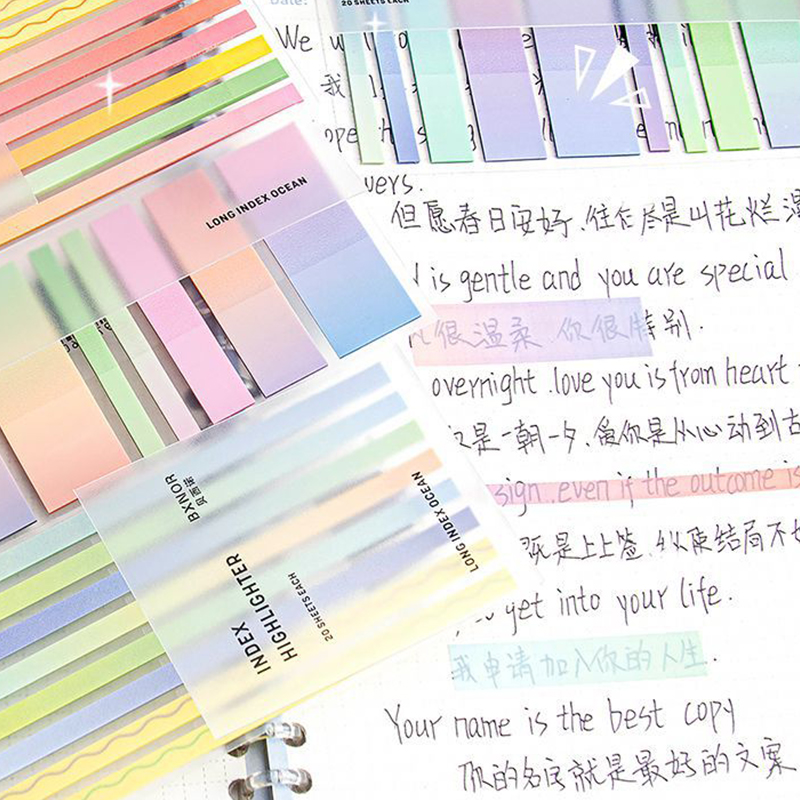 Date:
20 SHEETS EACH
We
我
ope
vers.
但愿春日安好,往后尽是山花烂漫
is gentle and you are special
很温柔 你很特别.
overnight .love you is from heart
是一朝一夕,爱你是从心动到古
sign..even if the outcome is
既是上上签,纵使结局不
get into your life.
我申请加入你的人生.
Your name is the best copy
你的名字就是最好的文案
LONG INDEX OCEAN
BXNOR
贝百诺
INDEX
HIGHLIGHTER
20 SHEETS EACH
LONG INDEX OCEAN